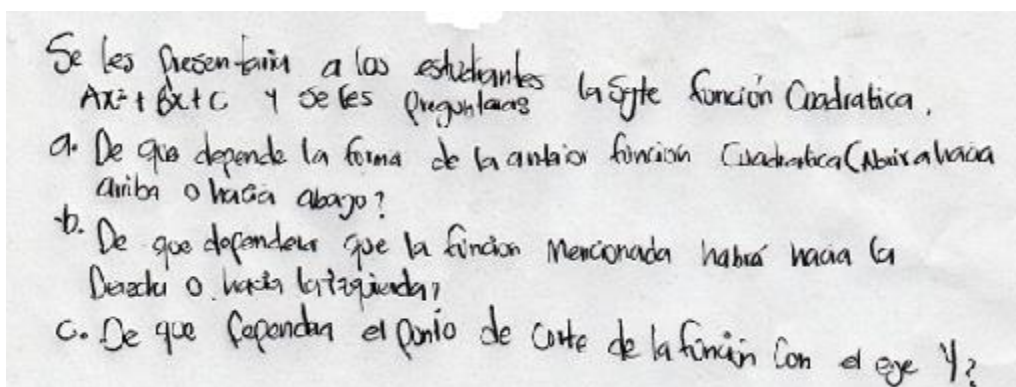 Se les presentaria a los estudiantes la sgte función Cuadratica.
Ax²+Bx+C y se les preguntara
a. De que depende la forma de la anterior función Cuadratica (Abrir hacia
arriba o hacia abajo?
b. De que dependera que la función Mencionada habrá hacia la
Derecha o hacia la izquierda?
c. De que dependera el punto de corte de la función Con el eje Y?